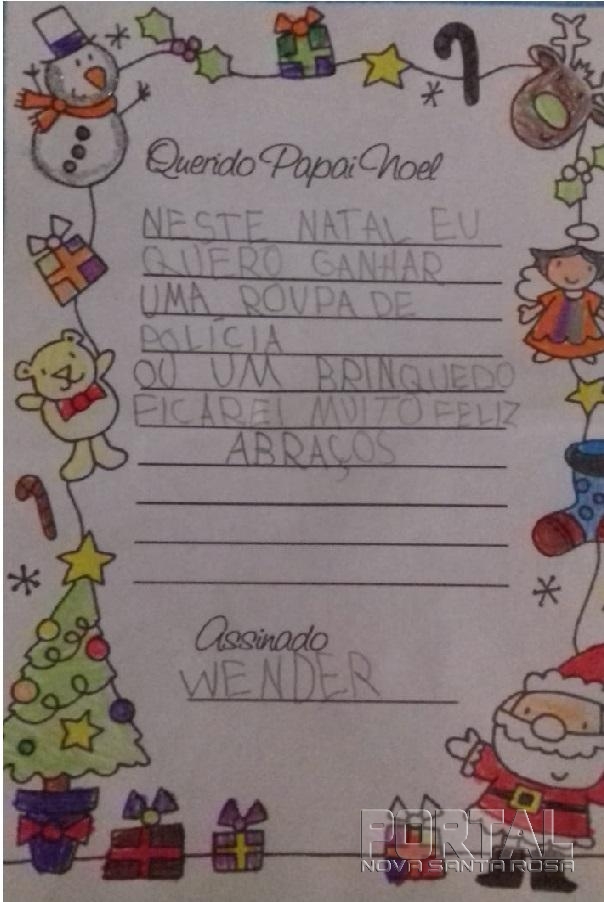 Querido Papai Noel
NESTE NATAL EU
QUERO GANHAR
UMA ROUPA DE
POLÍCIA
OU UM BRINQUEDO
FICAREI MUITO FELIZ
ABRAÇOS
Assinado
WENDER
PORTAL
NOVA SANTA ROSA